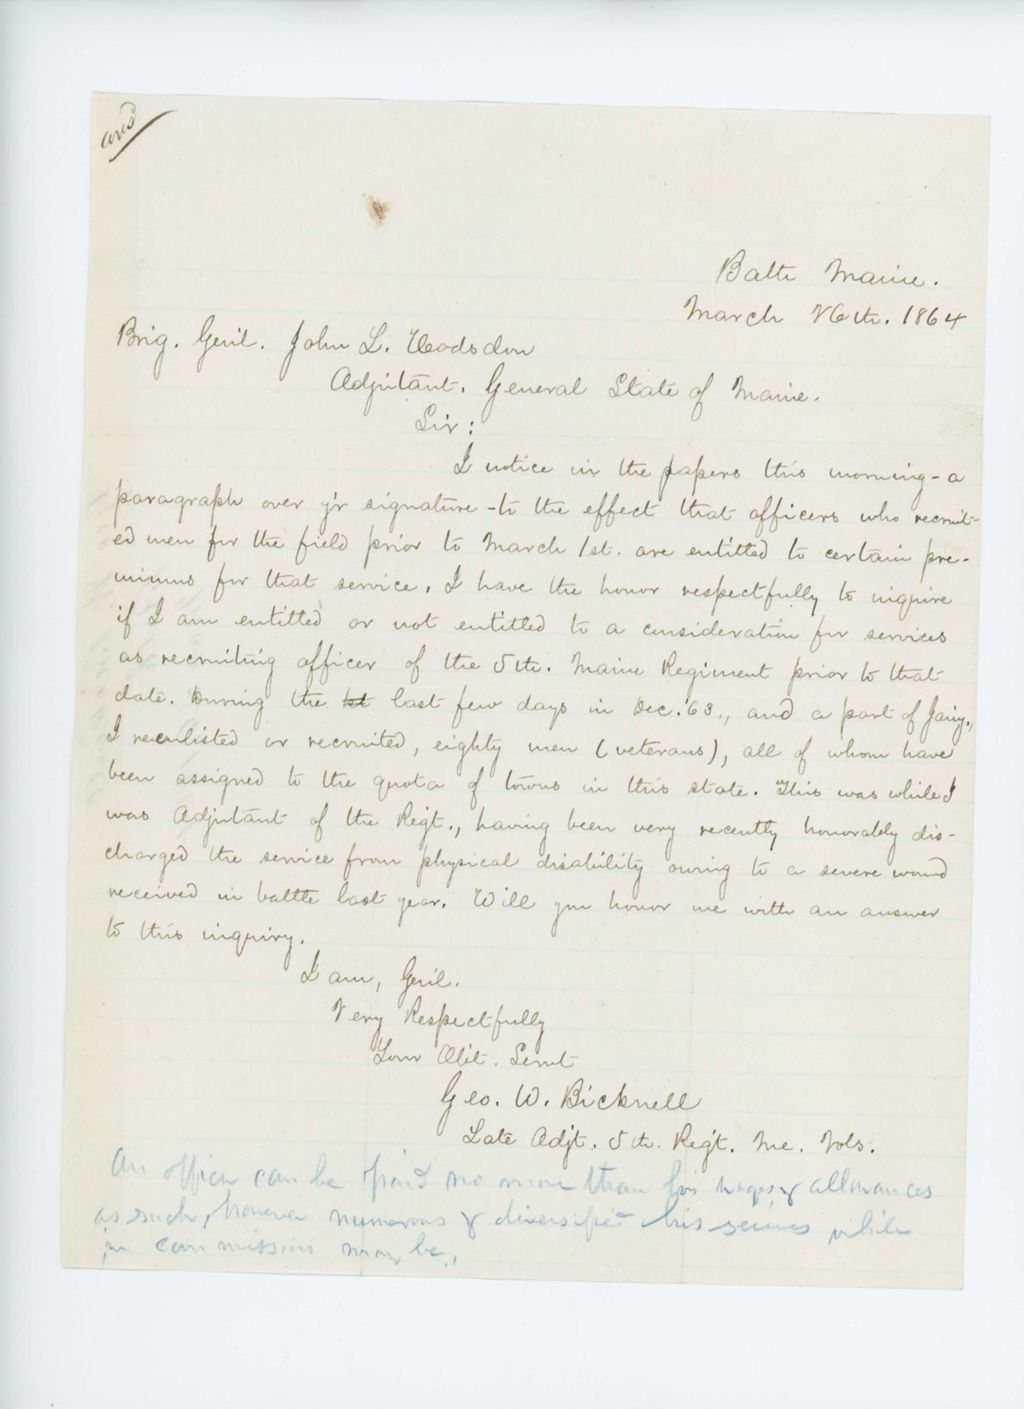 ansd
Bath Maine.
March 26th. 1864
Brig. Gen'l. John L. Hodsdon
Adjutant. General State of Maine.
Sir:
I notice in the papers this morning - a
paragraph over y'r signature - to the effect that officers who recruit-
ed men for the field prior to March 1st. are entitled to certain pre-
miums for that service. I have the honor respectfully to inquire
if I am entitled or not entitled to a consideration for services
as recruiting officer of the 5th. Maine Regiment prior to that
date. During the last few days in Dec. '63., and a part of Jany.,
I reenlisted or recruited, eighty men (veterans), all of whom have
been assigned to the quota of towns in this state. This was while I
was Adjutant of the Regt., having been very recently honorably dis-
charged the service from physical disability owing to a severe wound
received in battle last year. Will you honor me with an answer
to this inquiry.
I am, Gen'l.
Very Respectfully
Your Obt. Servt
Geo. W. Bicknell
Late Adjt. 5th. Regt. Me. Vols.
An officer can be paid no more than his wages & allowances
as such, however numerous & diversified his services while
in commission may be.